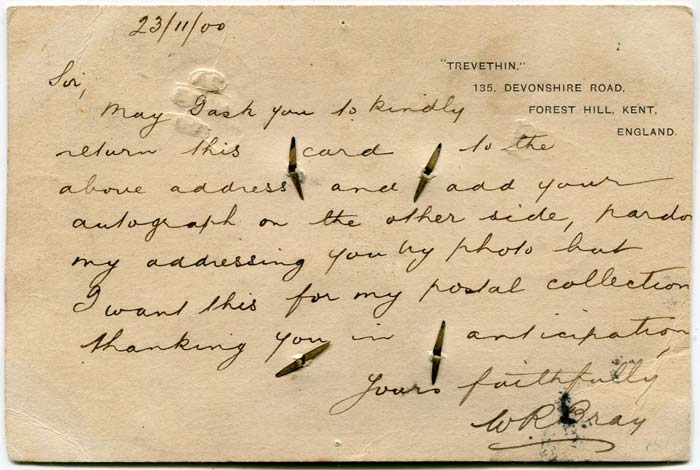 23/11/00
"TREVETHIN,"
135, DEVONSHIRE ROAD,
FOREST HILL, KENT,
ENGLAND.
Sir,
May I ask you to kindly
return this card to the
above address and add your
autograph on the other side, pardon
my addressing you by photo but
I want this for my postal collection
thanking you in anticipation,
Yours faithfully
W R Bray